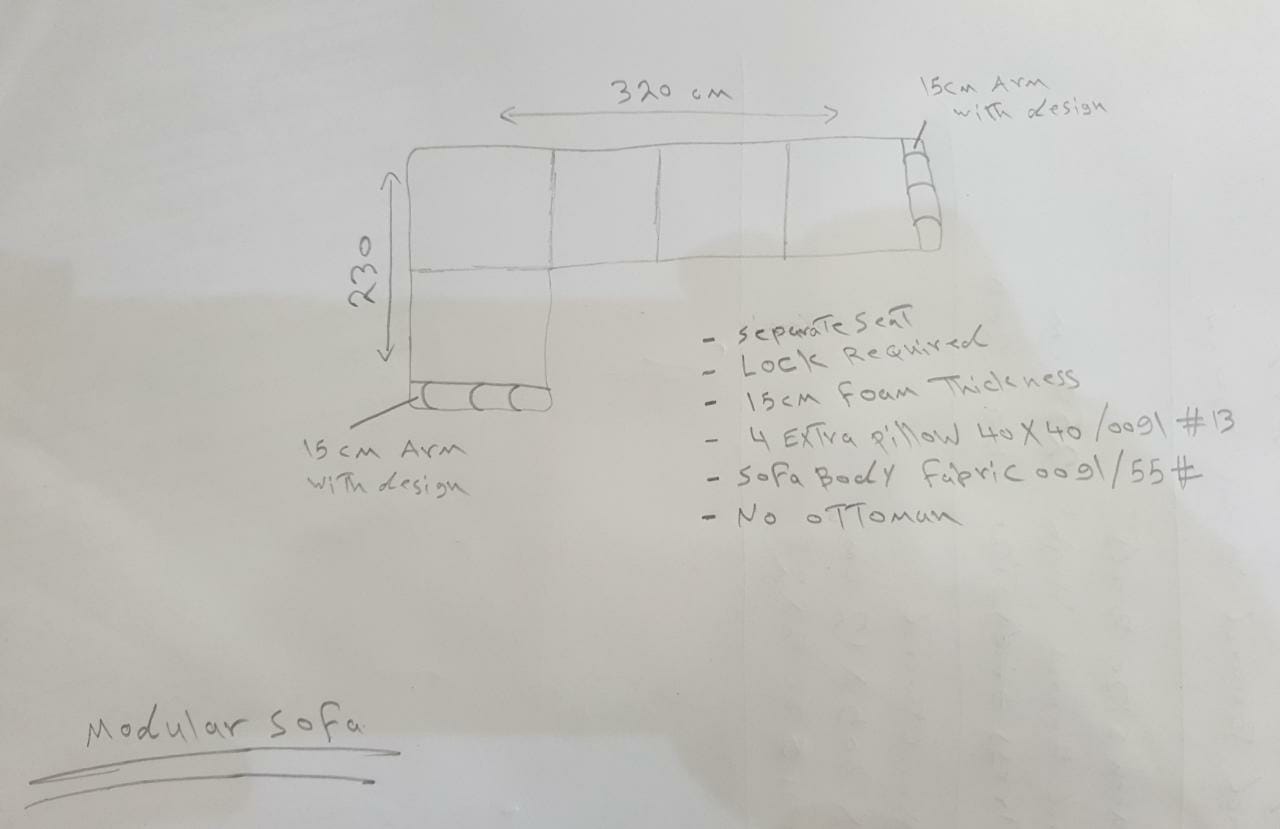 320 cm
15cm Arm
with design
230
15cm Arm
with design
- Separate Seat
- Lock Required
- 15cm Foam Thickness
- 4 Extra pillow 40X40/0091 #13
- Sofa Body Fabric 0091/55#
- No ottoman
Modular Sofa